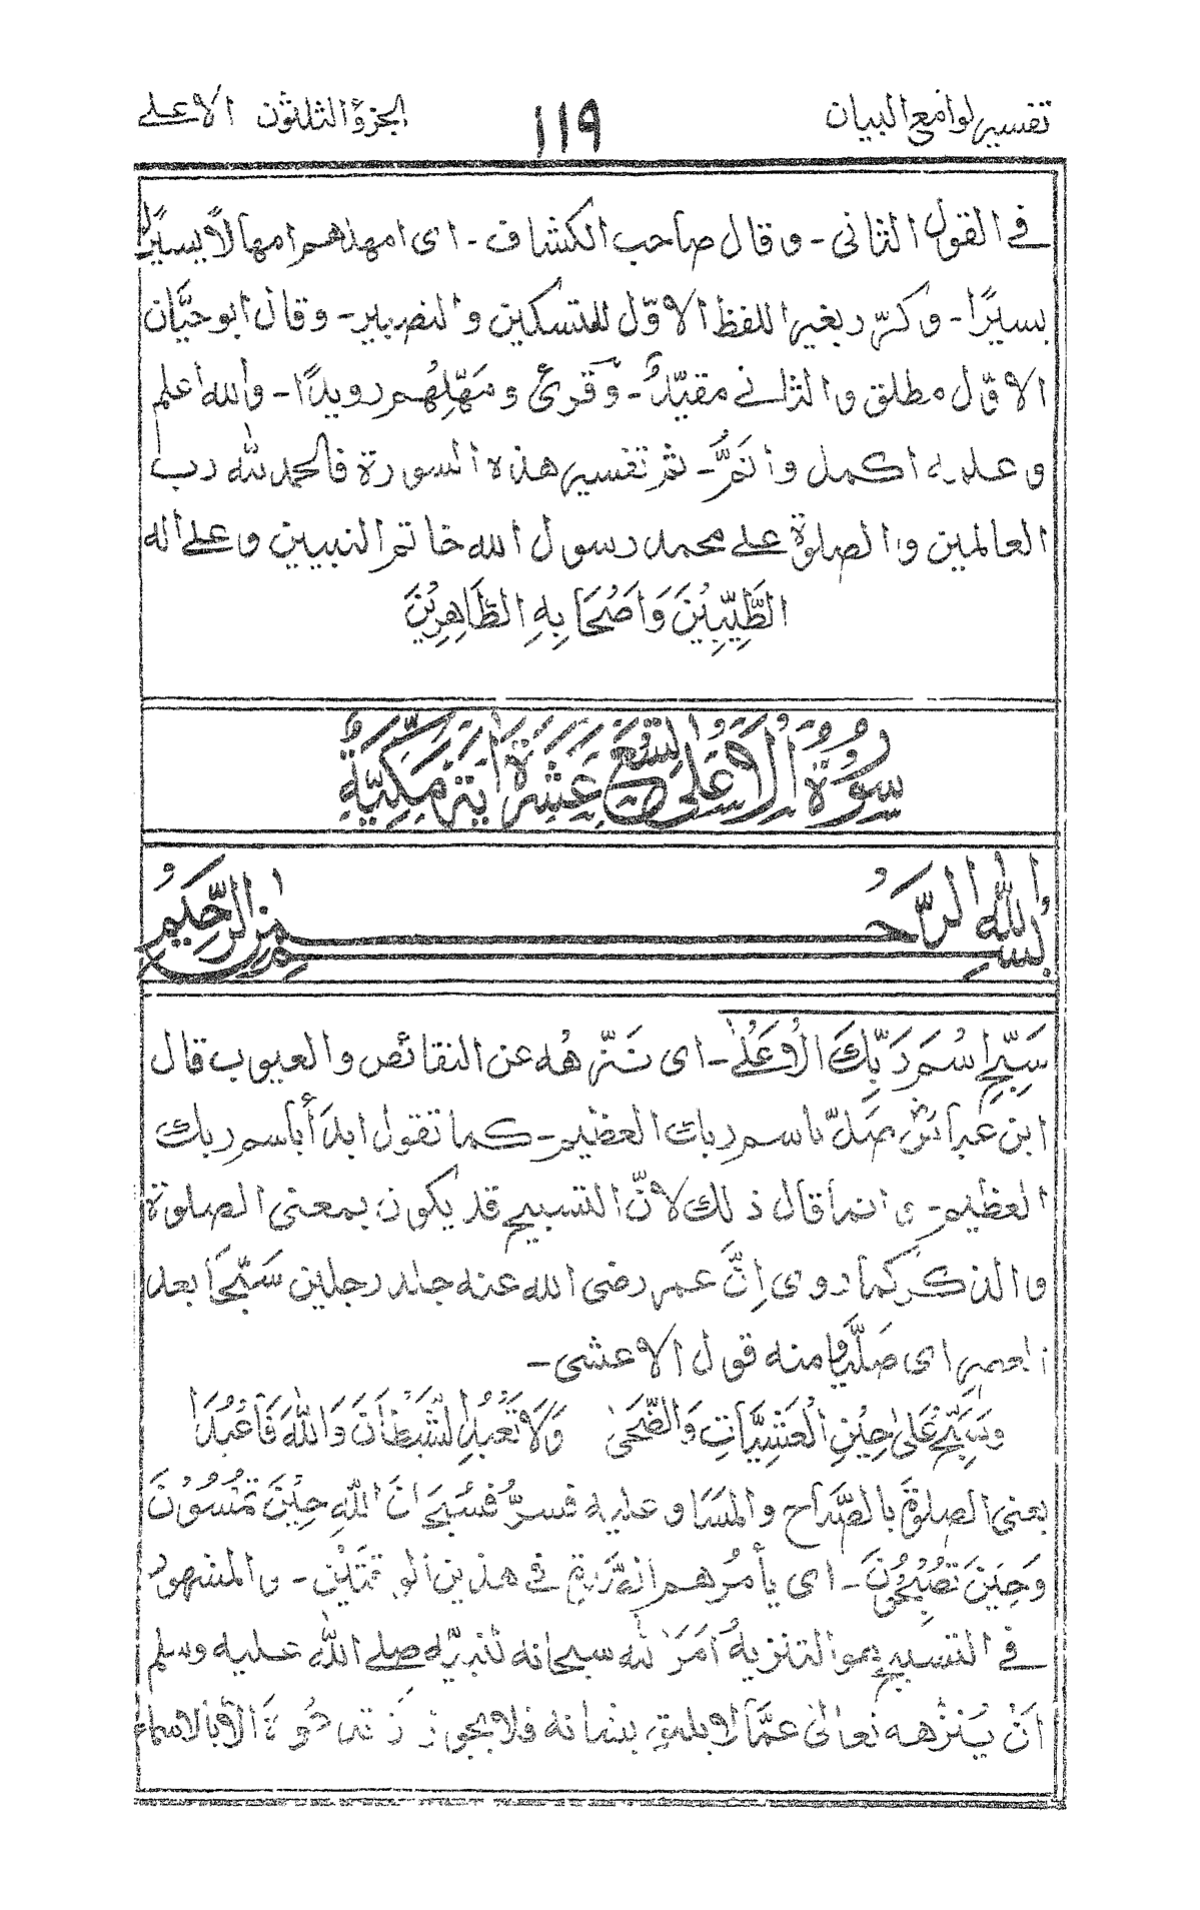 تفسير لوامع البيان ١١٩ الجزؤ الثلثون الاعلے
في القول الثانى - وقال صاحب الكشاف - اى امهلهم امهالاً يسيرًا
يسيرًا - وكرّر بغير اللفظ الاوّل للتسكين والتصبير - وقال ابو حيَّان
الاوّل مطلق والثانے مقيّدٌ - وقرئ ومَهّلِهُم رويدًا - والله اعلم
وعلمه اكمل واتمُّ - تم تفسير هذه السورة فالحمد لله رب
العالمين والصلوة علے محمد رسول الله خاتم النبيين وعلے اله
الطَّيِّبِيْنَ وَاَصْحَابِهِ الطَّاهِرِيْنَ
سُوْرَةُ الْاَعْلٰى تِسْعَ عَشَرَةَ اٰيَةً مَكِّيَّةٌ
بِسْمِ اللّٰهِ الرَّحْمٰنِ الرَّحِيْمِ
سَبِّحِ اسْمَ رَبِّكَ الْاَعْلَے - اى نَزِّهْهُ عن النقائص والعيوب قال
ابن عباسؓ صَلِّ باسم ربك العظيم - كما تقول ابدأ باسم ربك
العظيم - وانما قال ذلك لانّ التسبيح قد يكون بمعنى الصلوة
والذكر كما روى اِنَّ عمر رضى الله عنه جلد رجلين سَبَّحَا بعد
العصر اى صَلَّيا ومنه قول الاعشى -
وَسَبِّحْ عَلٰى حِيْنِ الْعَشِيَّاتِ وَالضُّحٰى وَلَا تَعْبُدِ الشَّيْطَانَ وَاللّٰهَ فَاعْبُدَا
يعنى الصلوة بالصَّبَاح والمَسَا وعليه فسرّ فَسُبْحَانَ اللّٰهِ حِيْنَ تُمْسُوْنَ
وَحِيْنَ تُصْبِحُوْنَ - اى يأمُرُهم فى هذين الوقتَيْنِ - والمشهور
في التسبيح هو التنزيهُ اَمَرَ الله سبحانه نبيّه صلے الله عليه وسلم
انْ يُنَزّهه تعالىٰ عمَّا لا يليق بشانه فلا يجوز الاّ بالاسماء